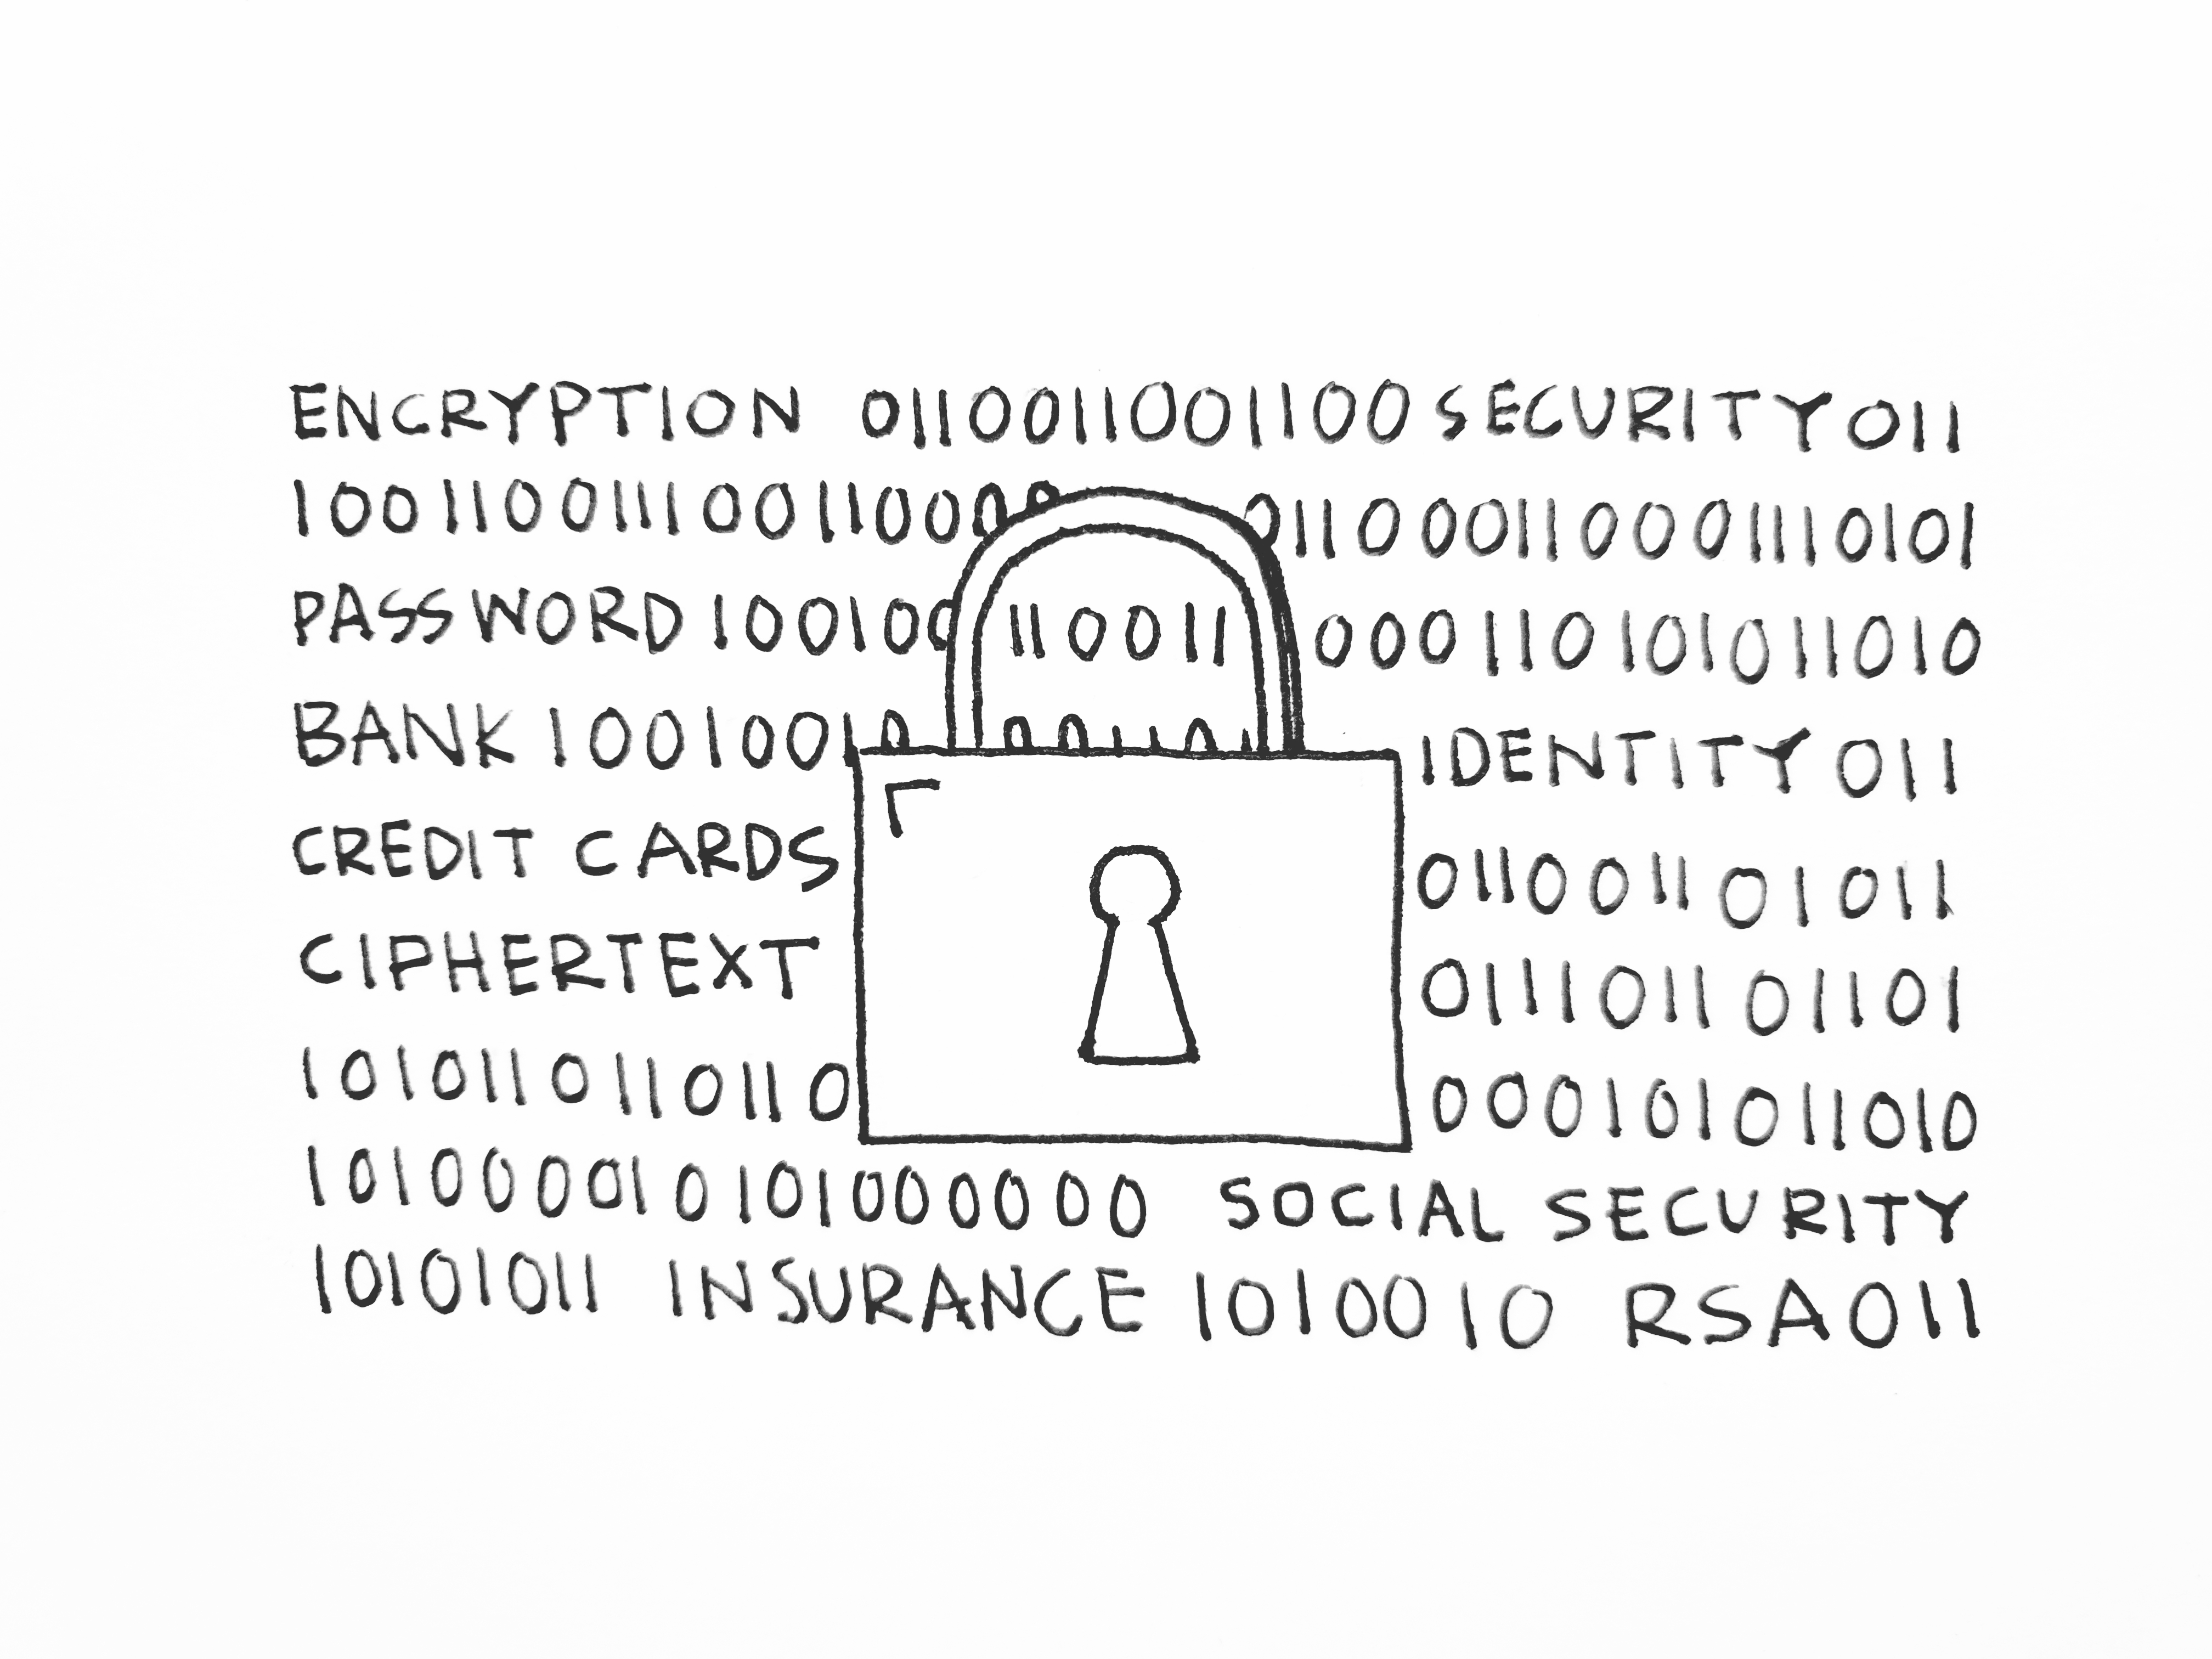 ENCRYPTION 0110011001100 SECURITY 011
1001100111001100000 011000110001110101
PASSWORD 100100 110011 000110101011010
BANK 10010010 IDENTITY 011
CREDIT CARDS 01100110101 1
CIPHERTEXT 01110110 1101
1010110110110 000101011010
1010000101010000 00 SOCIAL SECURITY
10101011 INSURANCE 1010010 RSA011